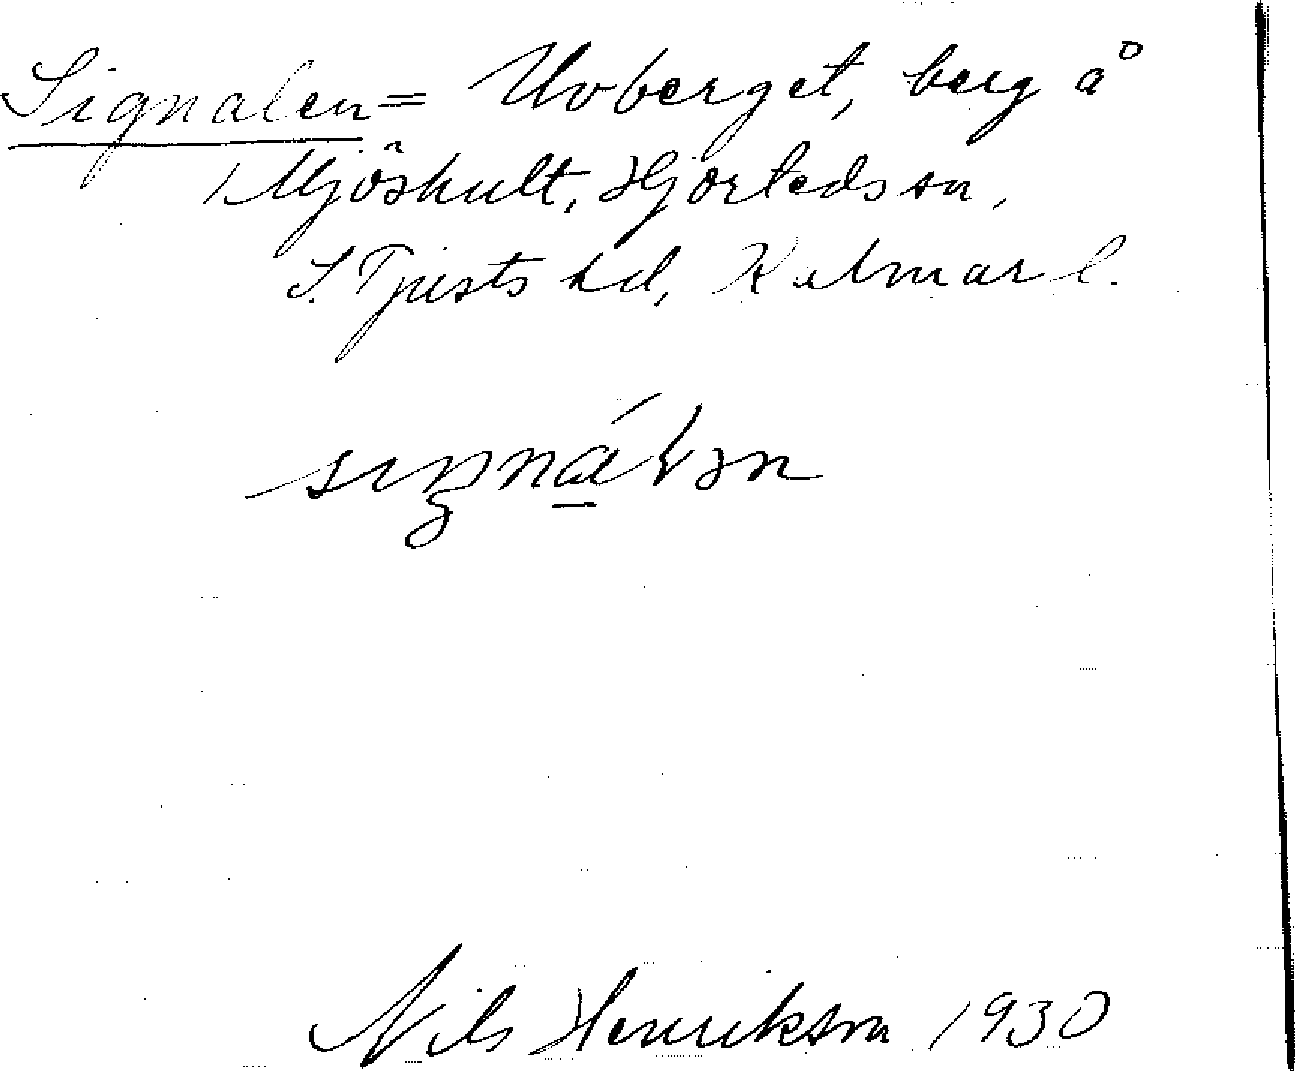 Signalen = Uvberget, berg å
Mjöshult, Hjorteds sn,
S. Tjusts hd, Kalmar l.
Nils Henrikson 1930